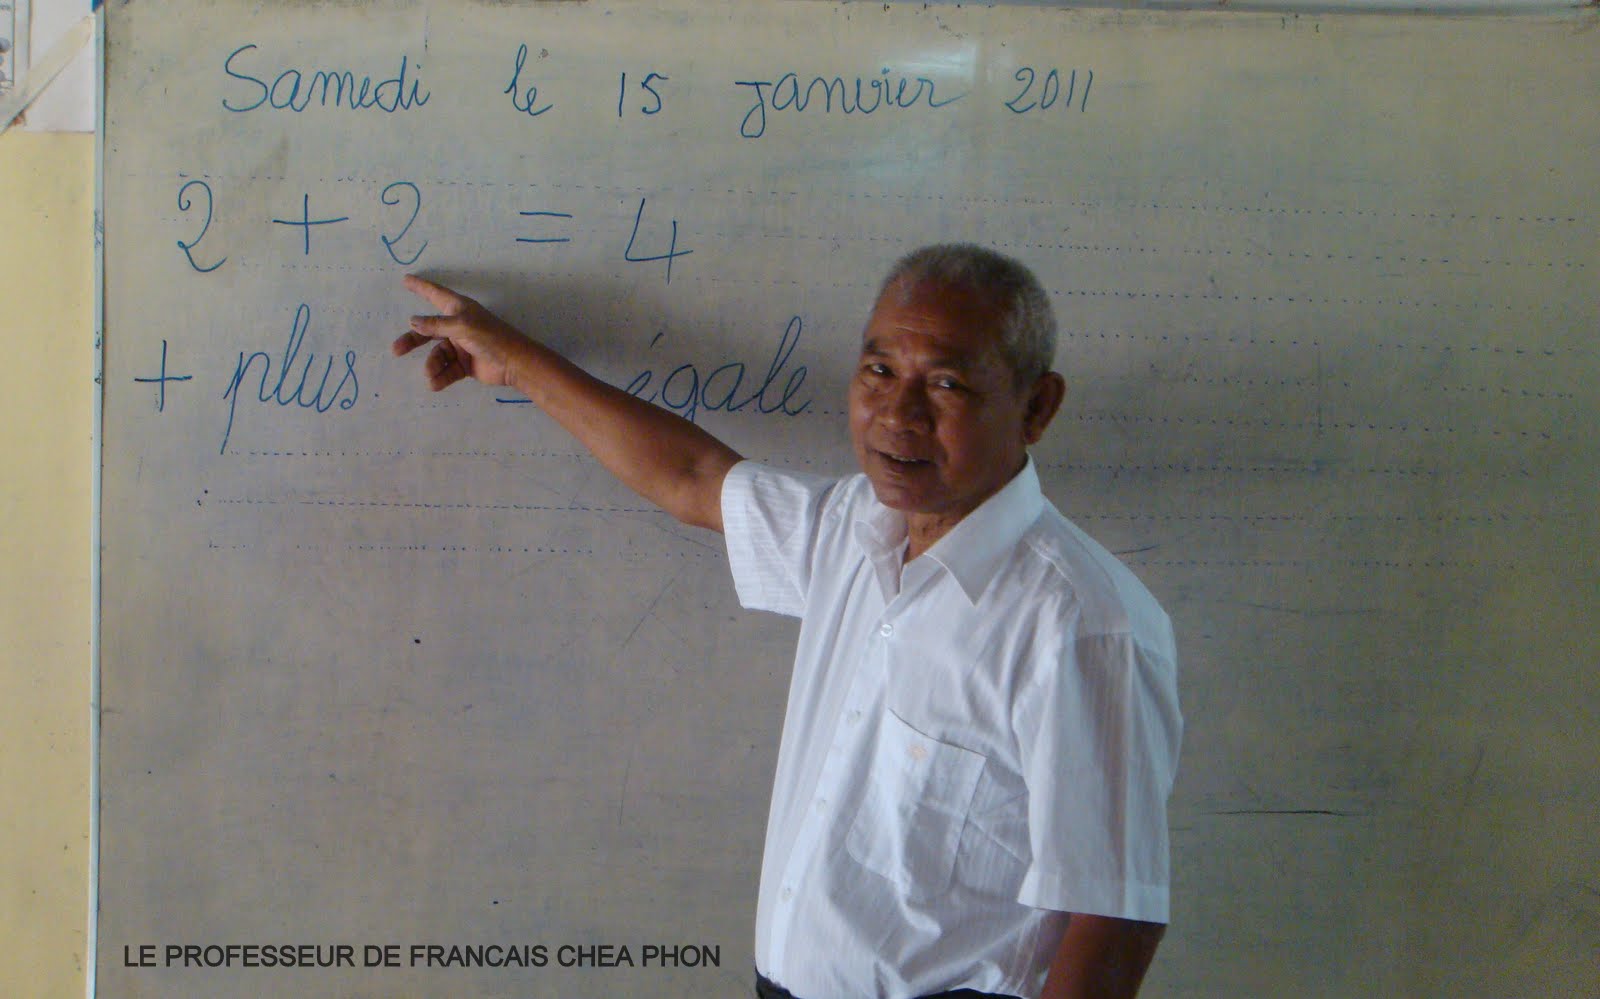 Samedi le 15 janvier 2011
2 + 2 = 4
+ plus. = égale
LE PROFESSEUR DE FRANCAIS CHEA PHON